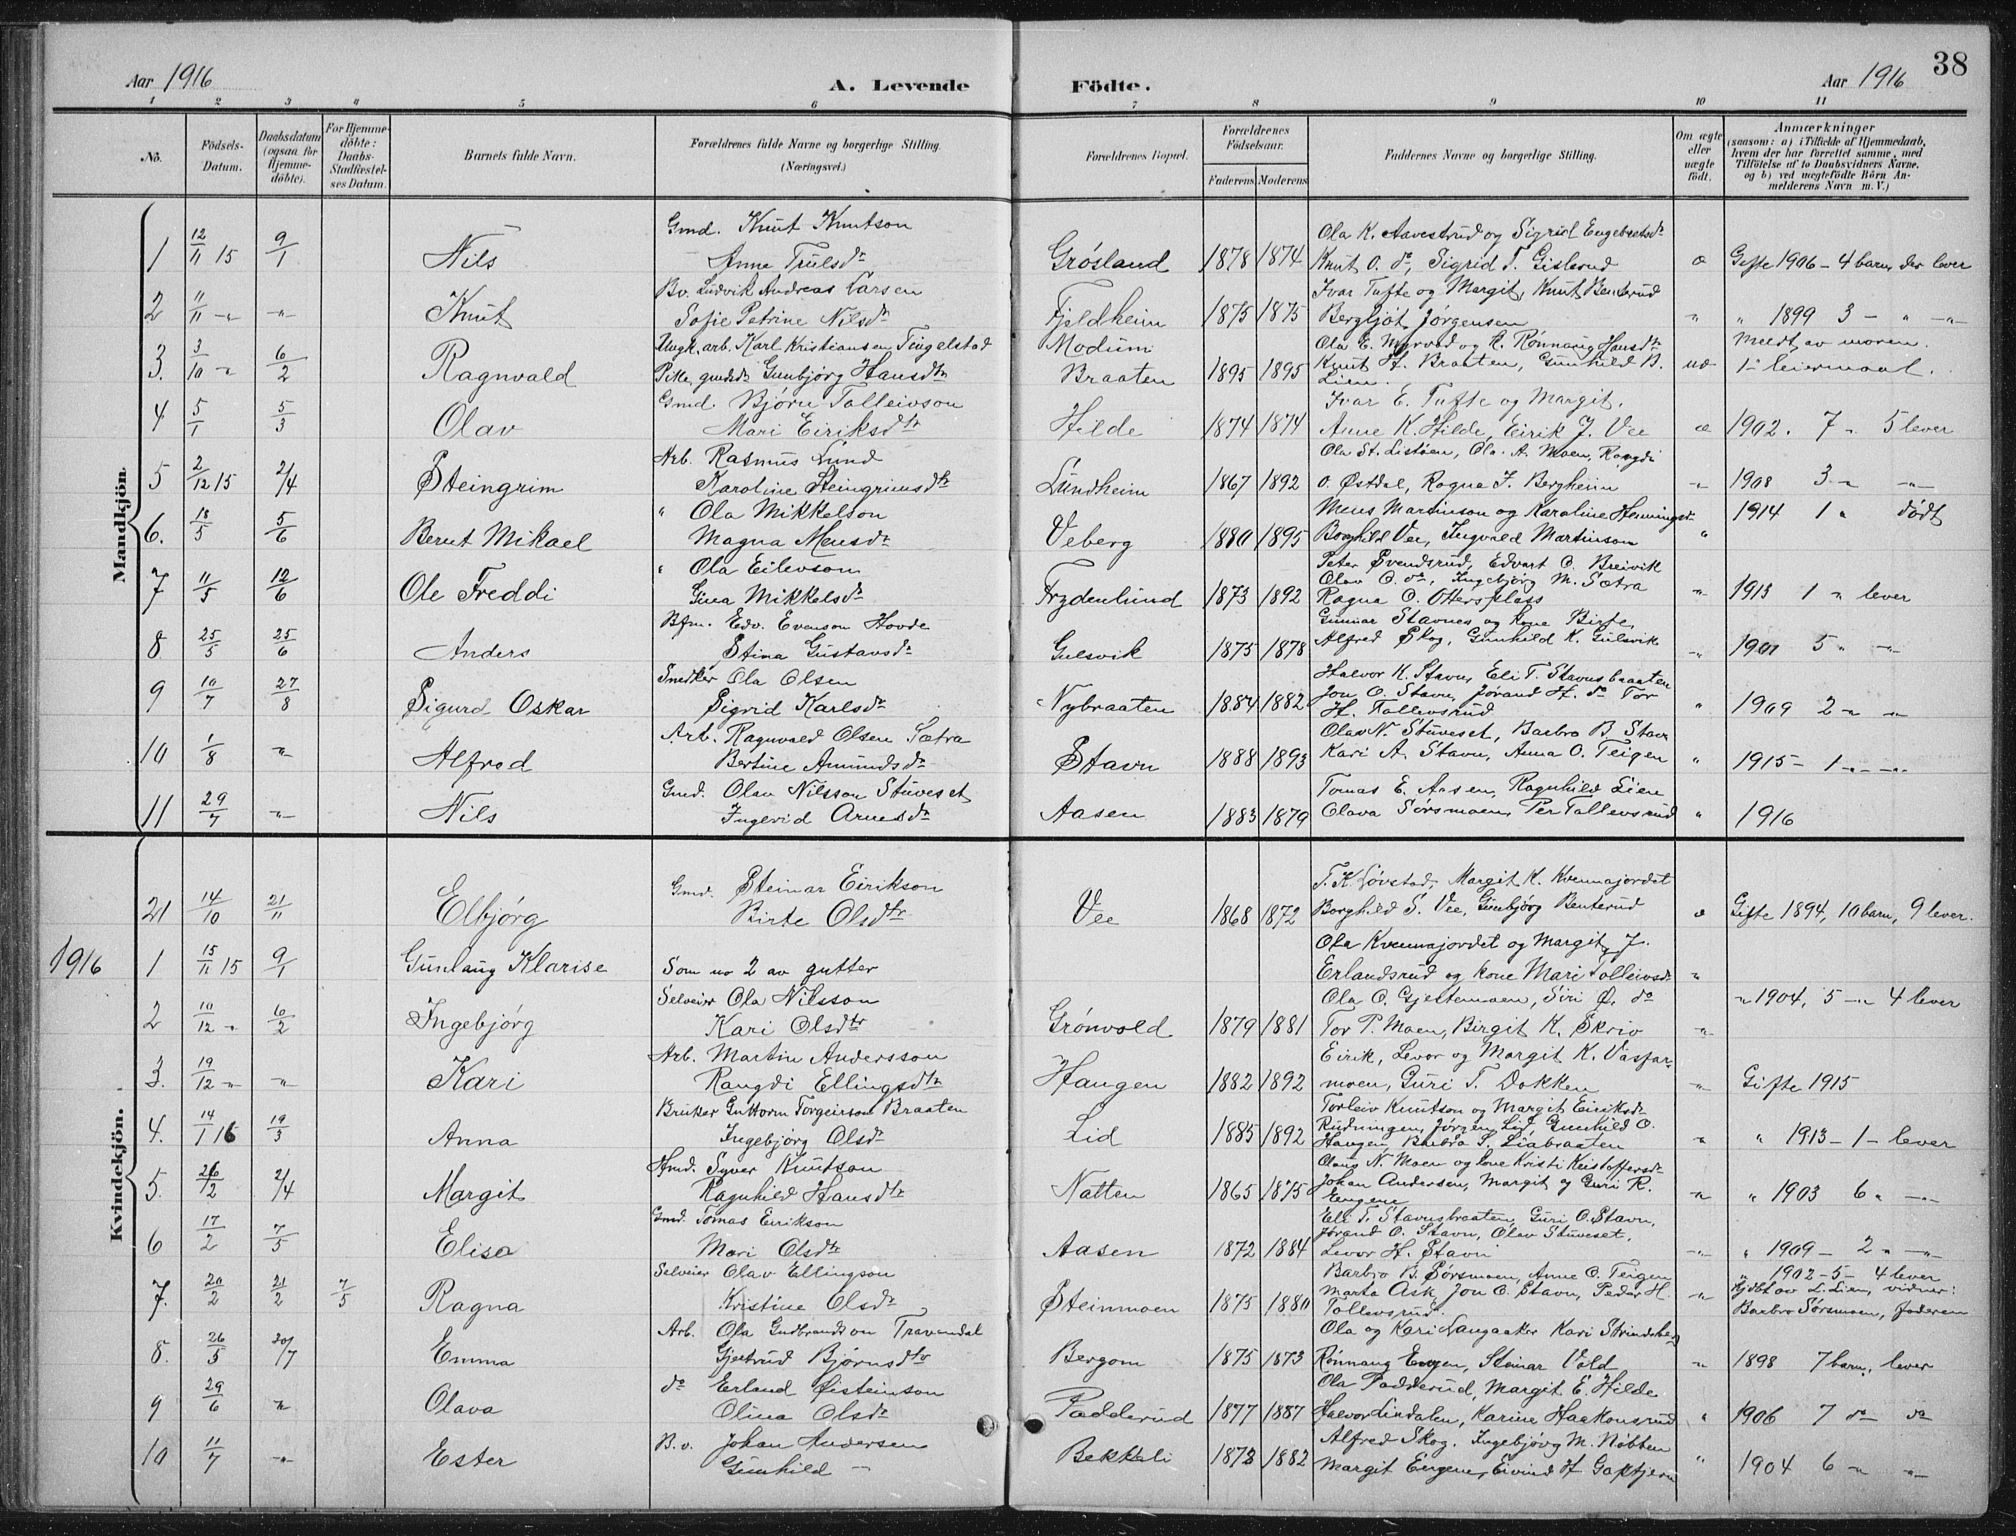 38
Aar 1916 A. Levende Födte. Aar 1916
1 2 3 4 5 6 7 8 9 10 11
No. Födsels-Datum. Daabsdatum (ogsaa for Hjemme-döbte). For Hjemme-döbte: Daabs-Stadfæstel-ses Datum. Barnets fulde Navn. Forældrenes fulde Navne og borgerlige Stilling. (Næringsvei.) Forældrenes Bopæl. Forældrenes Födselsaar. Faderens Moderens Faddernes Navne og borgerlige Stilling. Om ægte eller uægte födt. Anmærkninger (saasom: a) i Tilfælde af Hjemmedaab, hvem der har forrettet samme, med Tilföielse af to Daabsvidners Navne, og b) ved uægtefödte Börn An-melderens Navn m. V.)
Mandkjön.
Gmd. Knut Knutson Ola K. Aavestrud og Sigrid Engebretsdr
1 12/11 15 9/1 Nils Anne Trulsdr Grøsland 1878 1874 Knut O. do, Sigrid T. Gislerud æ Gifte 1906 - 4 barn, der lever
Bv. Ludvik Andreas Larsen Ivar Tufte og Margit, Knut Benterud
2 11/11 -"- -"- Knut Sofie Petrine Nilsdr Fjeldheim 1875 1875 Bergljot Jørgensen " " 1899 3 - " -"-
Ungk. arb. Karl Kristiansen Tingelstad Modum Ola E. og K. Rønnaug Hansdr Meldt av moren.
3. 3/10 " 6/2 Ragnvald Pike, gmdsdr Gunbjørg Hansdtr Braaten 1895 1895 Knut H. Braaten, Gunhild B. Lien. uæ 1ste leiermaal.
Gmd. Bjørn Tolleivson Ivar E. Tufte og Margit.
4 5/1 5/3 Olav Mari Eiriksdtr Hilde 1874 1874 Anne K. Hilde, Eirik J. Vee æ 1902. 7 " 5 lever
Arb. Rasmus Lund Ola St. Listøen, Ola A. Moen, Rangdi
5 2/12 15 2/4 Steingrim Karoline Steingrimsdtr Lundheim 1867 1892 O. Østdal, Ragna J. Bergheim " 1908 3 " -"-
" Ola Mikkelson Mens Martinson og Karoline Henningsdr
6. 18/5 5/6 Berut Mikael Magna Mensdr Veberg 1880 1895 Borghild Vee, Ingvald Martinson " 1914 1 " dødt
" Ola Eilevson Peter Svendsrud, Edvart O. Breivik
7 11/5 12/6 Ole Freddi Gina Mikkelsdr Frydenlund 1873 1892 Olav O. do, Ingebjørg M. Sætra Ragna O. Ottersplass " 1913 1 " lever
Bfm. Edv. Evenson Hovde Gunnar Stavnes og kone Birte,
8 25/5 25/6 Anders Stina Gustavsdr Gulsvik 1875 1878 Alfred Skog, Gunhild K. Gulsvik " 1901 5 " -"-
Snedker Ola Olsen Halvor K. Stavn, Eli T. Stavnsbraaten
9 10/7 27/8 Sigurd Oskar Sigrid Karlsdr Nybraaten 1884 1882 Jon O. Stavn, Jorand H. do Tor H. Tollevsrud " 1909 2 " "
Arb. Ragnvald Olsen Sætra Olav N. Stuveset, Barbro B. Stavn
10 1/8 " Alfred Bertine Amundsdr Stavn 1888 1893 Kari A. Stavn, Anna O. Teigen " 1915 - 1 " -"-
Gmd. Olav Nilsson Stuveset Tomas E. Aasen, Ragnhild Lien
11 29/7 -"- Nils Ingerid Arnesdr Aasen 1883 1879 Olava Sørsmoen, Per Tollevsrud " 1916
Kvindekjön.
Gmd. Steinar Eirikson T. K. Løvstad, Margit K. Kvennajordet
21 14/10 21/11 Elbjørg Birte Olsdtr Vee 1868 1872 Borghild S. Vee, Gunbjørg Benterud æ Gifte 1894, 10 barn, 9 lever.
Ola Kvennajordet og Margit J.
1916 1 15/11 15 9/1 Gunlaug Klarise Som no 2 av gutter Erlandsrud og kone Mari Tolleivsdr "
Selveier Ola Nilsson Ola O. Gjestemoen, Siri Ø. do " 1904, 5 -"- 4 lever
2 10/12 " 6/2 Ingebjørg Kari Olsdtr Grønvold 1879 1881 Tor P. Moen, Birgit K. Skriv "
Arb. Martin Andersson Eirik, Levor og Margit K. Vasfar-
3. 19/12 " " Kari Rangdi Ellingsdtr Haugen 1882 1892 moen, Guri T. Dokken " Gifte 1915
Bruker Guttorm Torgeirson Braaten Torleiv Knutson og Margit Eiriksdr
4. 14/1 16 19/3 Anna Ingebjørg Olsdr Lid 1885 1892 Rudningen, Jørgen Lid, Gunhild O. Haugen, Barbra S. Liabraaten " " 1913 - 1 - lever
Hmd. Syver Knutson Olaus N. Moen og kone Kristi Kristoffersdr
5. 26/12 2/4 Margit Ragnhild Hansdtr Natten 1865 1875 Johan Andersen, Margit og Guri R. Engene " " 1903 6 " -"-
Gmd. Tomas Eirikson Eli T. Stavnsbraaten, Guri O. Stavn,
6 17/2 7/5 Elisa Mari Olsdtr Aasen 1872 1884 Jørand O. Stavn, Olav Stuveset, Levor H. Stavn -"- " 1909 - 2 " -"-
Selveier Olav Ellingson Barbro B. Sørsmoen, Anne O. Teigen " 1902 - 5 - 4 lever
7. 20/2 21/2 7/5 Ragna Kristine Olsdr Steinmoen 1875 1880 Marta Ask, Jon O. Stavn, Peder H. Tollevsrud. " Hjdbt av L. Lien, vidner: Barbro Sørsmoen, faderen
Arb. Ola Gudbrandson Travendal Ola og Kari Langaaker Kari Strindeberg
8. 26/5 30/7 Emma Gjertrud Bjørnsdtr Bergom 1875 1873 Rønnaug Engen, Steinar Vold " 1898 7 barn, lever
do Erland Øisteinson Ola Padderud, Margit E. Hilde
9 29/6 " Olava Olina Olsdr Padderud 1877 1887 Halvor Lindalen, Karine Haakonsrud " 1906 7 do do
B.v. Johan Andersen Alfred Skog, Ingebjørg M. Nøbben
10 11/7 -"- Ester Gunhild - Bekkeli 1873 1882 Margit Engene, Eivind H. " 1904 6 " "